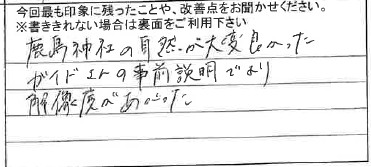 今回最も印象に残ったことや、改善点をお聞かせください。
※書ききれない場合は裏面をご利用下さい
鹿島神社の自然が大変良かった
ガイドよりの事前説明でより
解像度があがった